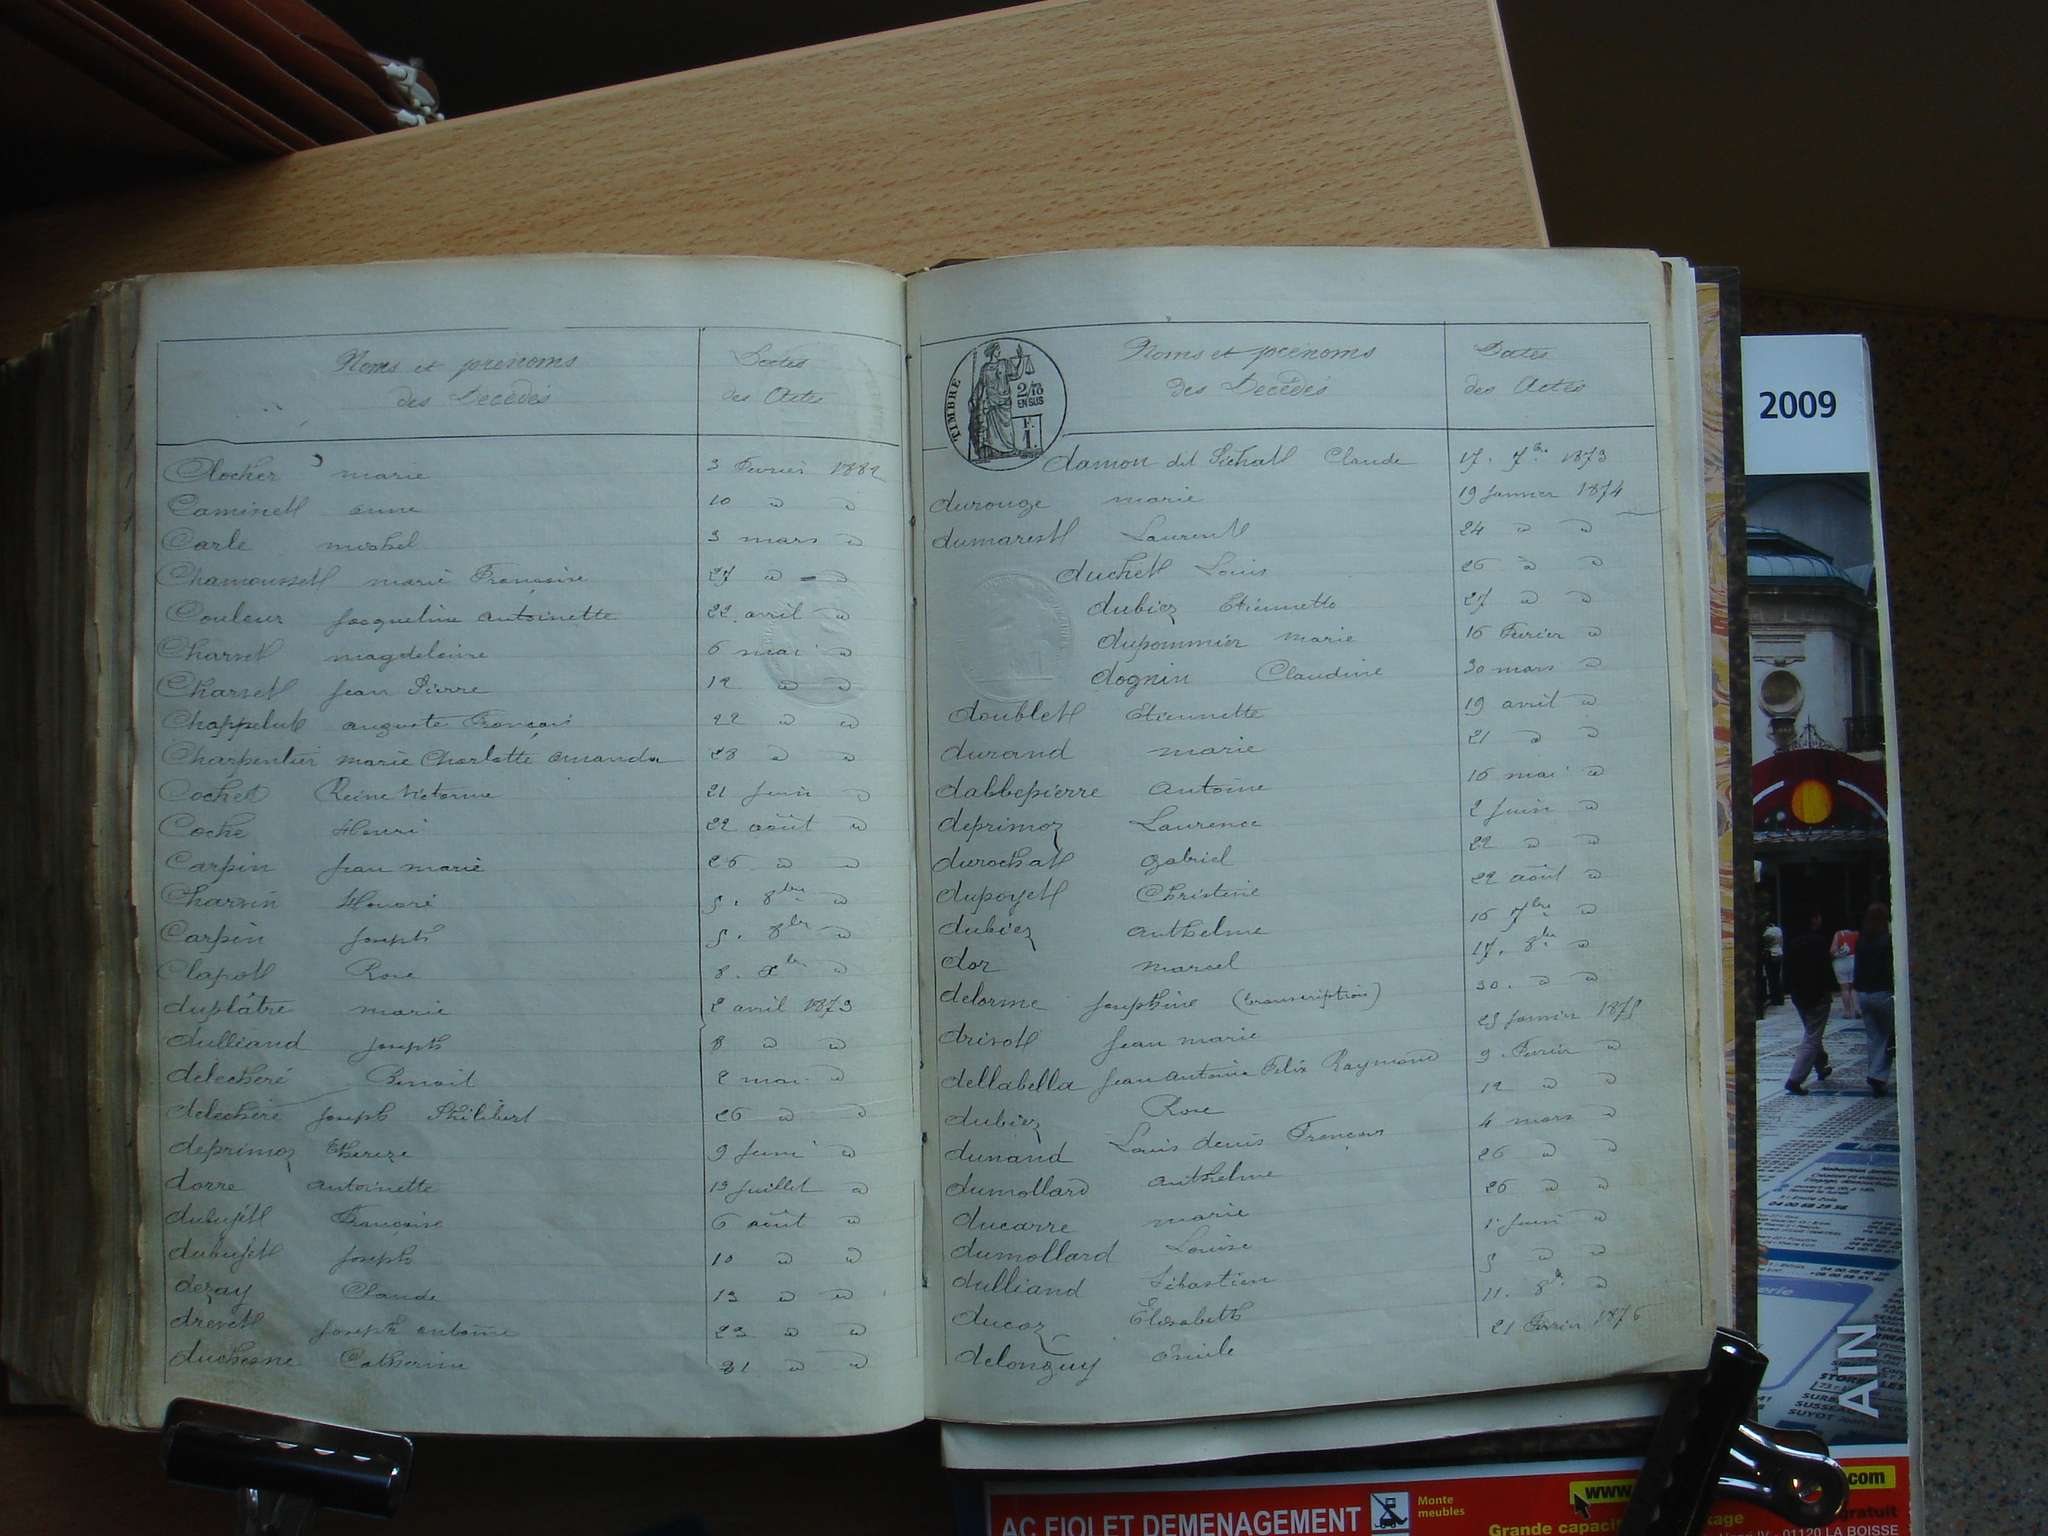 Noms et prénoms
des Décédés
Dates
des Actes
Clocher marie 3 Février 1882
Caminet anne 10 " "
Carle michel 3 mars "
Chamousset marie Françoise 27 " "
Couleur Jacqueline antoinette 22 avril "
Charvet magdeleine 6 mai "
Charvet Jean Pierre 12 " "
Chappelut auguste François 22 " "
Charpentier marie Charlotte amanda 28 " "
Cochet Reine Victorine 21 Juin "
Coche Henri 22 août "
Carpin Jean marie 26 " "
Charvin Honoré 5. 8bre "
Carpin Joseph 5. 8bre "
Clapot Rose 8. Xbre "
duplâtre marie 2 avril 1873
dulliand Joseph 8 " "
delecheré Benoit 2 mai "
delecheré Joseph Philibert 26 " "
deprimoz Thereze 9 Juin "
dorre antoinette 13 Juillet "
dubujet Françoise 6 août "
dubujet Joseph 10 " "
dezay Claude 13 " "
drevet Joseph antoine 23 " "
duchesne Catherine 31 " "
TIMBRE
2/10
EN SUS
F.
1.
Noms et prénoms
des Décédés
Dates
des Actes
damon dit Claude 17. 7bre 1873
durouge marie 19 Janvier 1874
dumarest Laurent 24 " "
duchet Louis 26 " "
dubiez Etiennette 27 " "
dupommier marie 16 Février "
dognin Claudine 30 mars "
doublet Etiennette 19 avril "
durand marie 21 " "
dabbepierre antoine 16 mai "
deprimoz Laurence 2 Juin "
durochat gabriel 22 " "
dupoyet Christine 22 août "
dubiez anthelme 16 7bre "
dor marcel 17. 8bre "
delorme Josephine (transcription) 30. " "
drivot Jean marie 25 Janvier 1875
dellabella Jean antoine Felix Raymond 9. Février "
dubiez Rose 12 " "
dunand Louis denis François 4 mars "
dumollard anthelme 26 " "
ducarre marie 26 " "
dumollard Louise 1er Juin "
dulliand Sébastien 5 " "
ducoz Elisabeth 11. 8bre "
delonguy emile 21 Février 1876
2009
AIN
AC FIOLET DEMENAGEMENT
Monte
meubles
www.
.com
Grande capacité
gratuit
01120 LA BOISSE